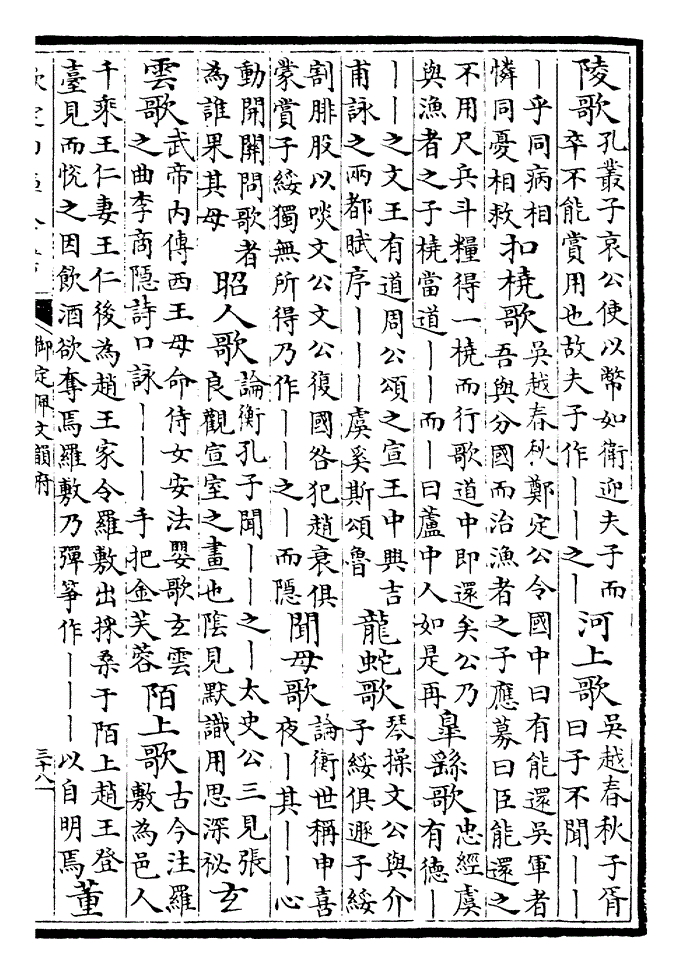 陵歌孔叢子哀公使以幣如衛迎夫子而卒不能賞用也故夫子作丨丨之丨河上歌吳越春秋子胥曰子不聞丨丨
丨乎同病相憐同憂相救扣橈歌吳越春秋鄭定公令國中曰有能還吳軍者吾與分國而治漁者之子應募曰臣能還之
不用尺兵斗糧得一橈而行歌道中即還矣公乃與漁者之子橈當道丨丨而丨曰蘆中人如是再臯繇歌忠經虞有德丨
丨丨之文王有道周公頌之宣王中興吉甫詠之兩都賦序丨丨丨虞奚斯頌魯龍蛇歌琴操文公與介子綏俱遯子綏
割腓股以啖文公文公復國咎犯趙衰俱蒙賞子綏獨無所得乃作丨丨之丨而隱聞母歌論衡世稱申喜夜丨其丨丨心
動開關問歌者為誰果其母昭人歌論衡孔子聞丨丨之丨太史公三見張良觀宣室之畫也陰見默識用思深祕玄
雲歌武帝內傳西王母命侍女安法嬰歌玄雲之曲李商隱詩口詠丨丨丨手把金芙蓉陌上歌古今注羅敷為邑人
千乘王仁妻王仁後為趙王家令羅敷出採桑于陌上趙王登臺見而悅之因飲酒欲奪焉羅敷乃彈箏作丨丨丨以自明焉董
御定佩文韻府
三十八